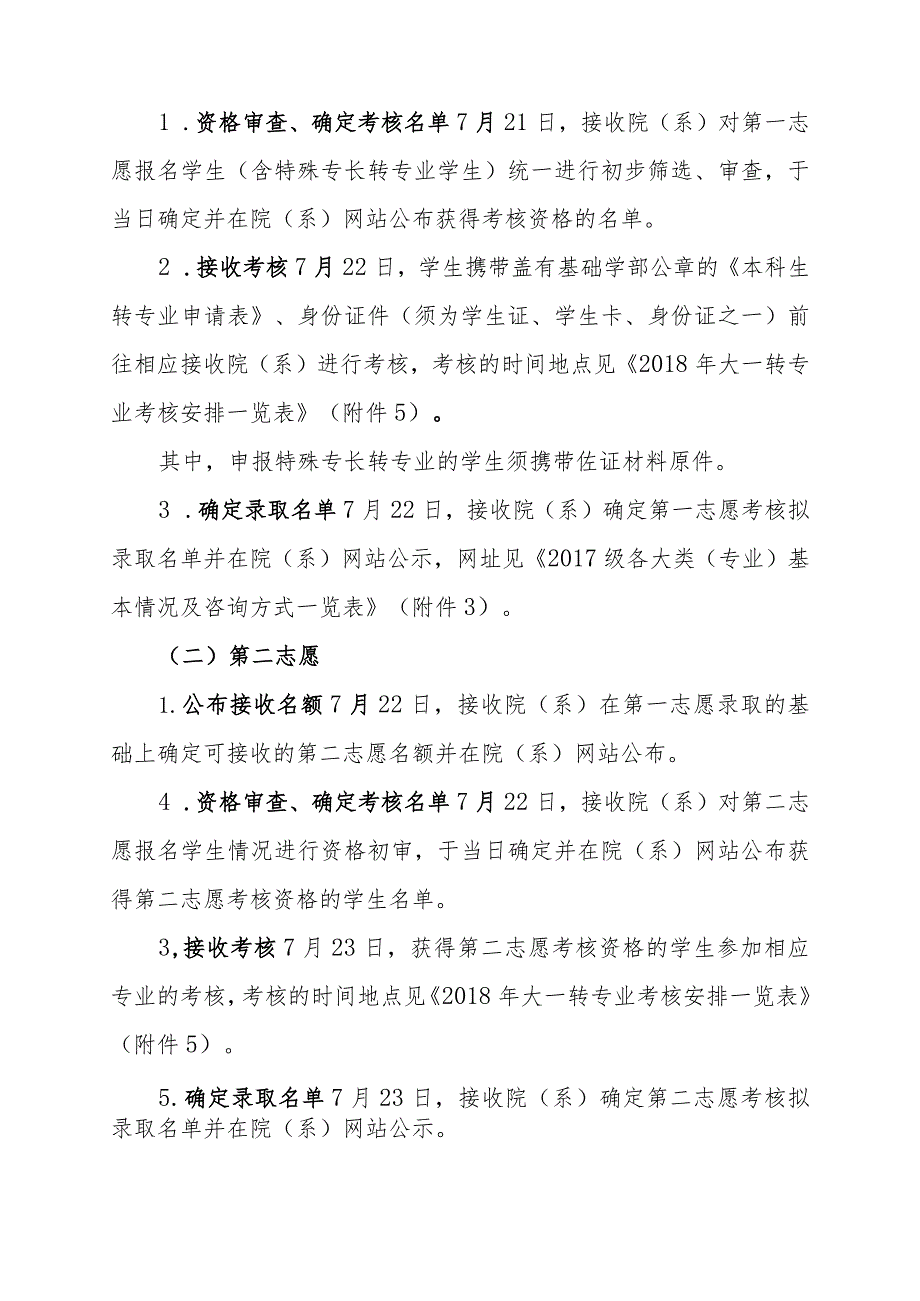 1 .资格审查、确定考核名单7月21日，接收院（系）对第一志
愿报名学生（含特殊专长转专业学生）统一进行初步筛选、审查，于
当日确定并在院（系）网站公布获得考核资格的名单。
2 .接收考核7月22日，学生携带盖有基础学部公章的《本科生
转专业申请表》、身份证件（须为学生证、学生卡、身份证之一）前
往相应接收院（系）进行考核，考核的时间地点见《2018年大一转专
业考核安排一览表》（附件5）。
其中，申报特殊专长转专业的学生须携带佐证材料原件。
3 .确定录取名单7月22日，接收院（系）确定第一志愿考核拟
录取名单并在院（系）网站公示，网址见《2017级各大类（专业）基
本情况及咨询方式一览表》（附件3）。
（二）第二志愿
1.公布接收名额7月22日，接收院（系）在第一志愿录取的基
础上确定可接收的第二志愿名额并在院（系）网站公布。
4 .资格审查、确定考核名单7月22日，接收院（系）对第二志
愿报名学生情况进行资格初审，于当日确定并在院（系）网站公布获
得第二志愿考核资格的学生名单。
3,接收考核7月23日，获得第二志愿考核资格的学生参加相应
专业的考核，考核的时间地点见《2018年大一转专业考核安排一览表》
（附件5）。
5.确定录取名单7月23日，接收院（系）确定第二志愿考核拟
录取名单并在院（系）网站公示。